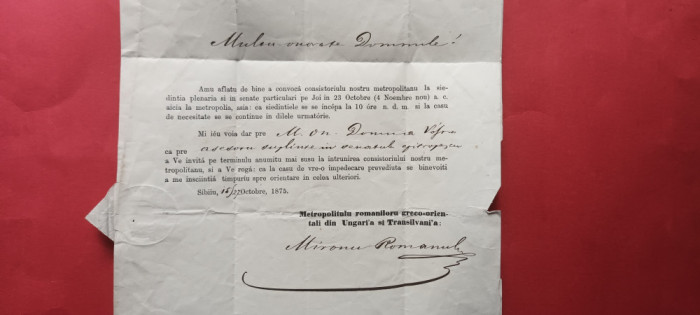 Multu onorate Domnule!
Amu aflatu de bine a convocá consistoriulu nostru metropolitanu la sie-
dintia plenaria si in senate particulari pe Joi in 23 Octobre (4 Noembre nou) a. c.
aicia la metropolia, asia: ca siedintiele se se incépa la 10 óre n. d. m. si la casu
de necesitate se se continue in dilele urmatórie.
Mi iéu voia dar pre M. On. Domnia Vóstra
ca pre asesoru suplinte in senatulu episcopescu
a Ve invitá pe terminulu anumitu mai susu la intrunirea consistoriului nostru me-
tropolitanu, si a Ve rogá: ca la casu de vre-o impedecare prevediuta se binevoiti
a me insciintiá timpuriu spre orientare in celea ulteriori.
Sibiin, 15/27 Octobre, 1875.
Metropolitulu romaniloru greco-orien-
tali din Ungari'a si Transilvani'a:
Mironu Romanulu